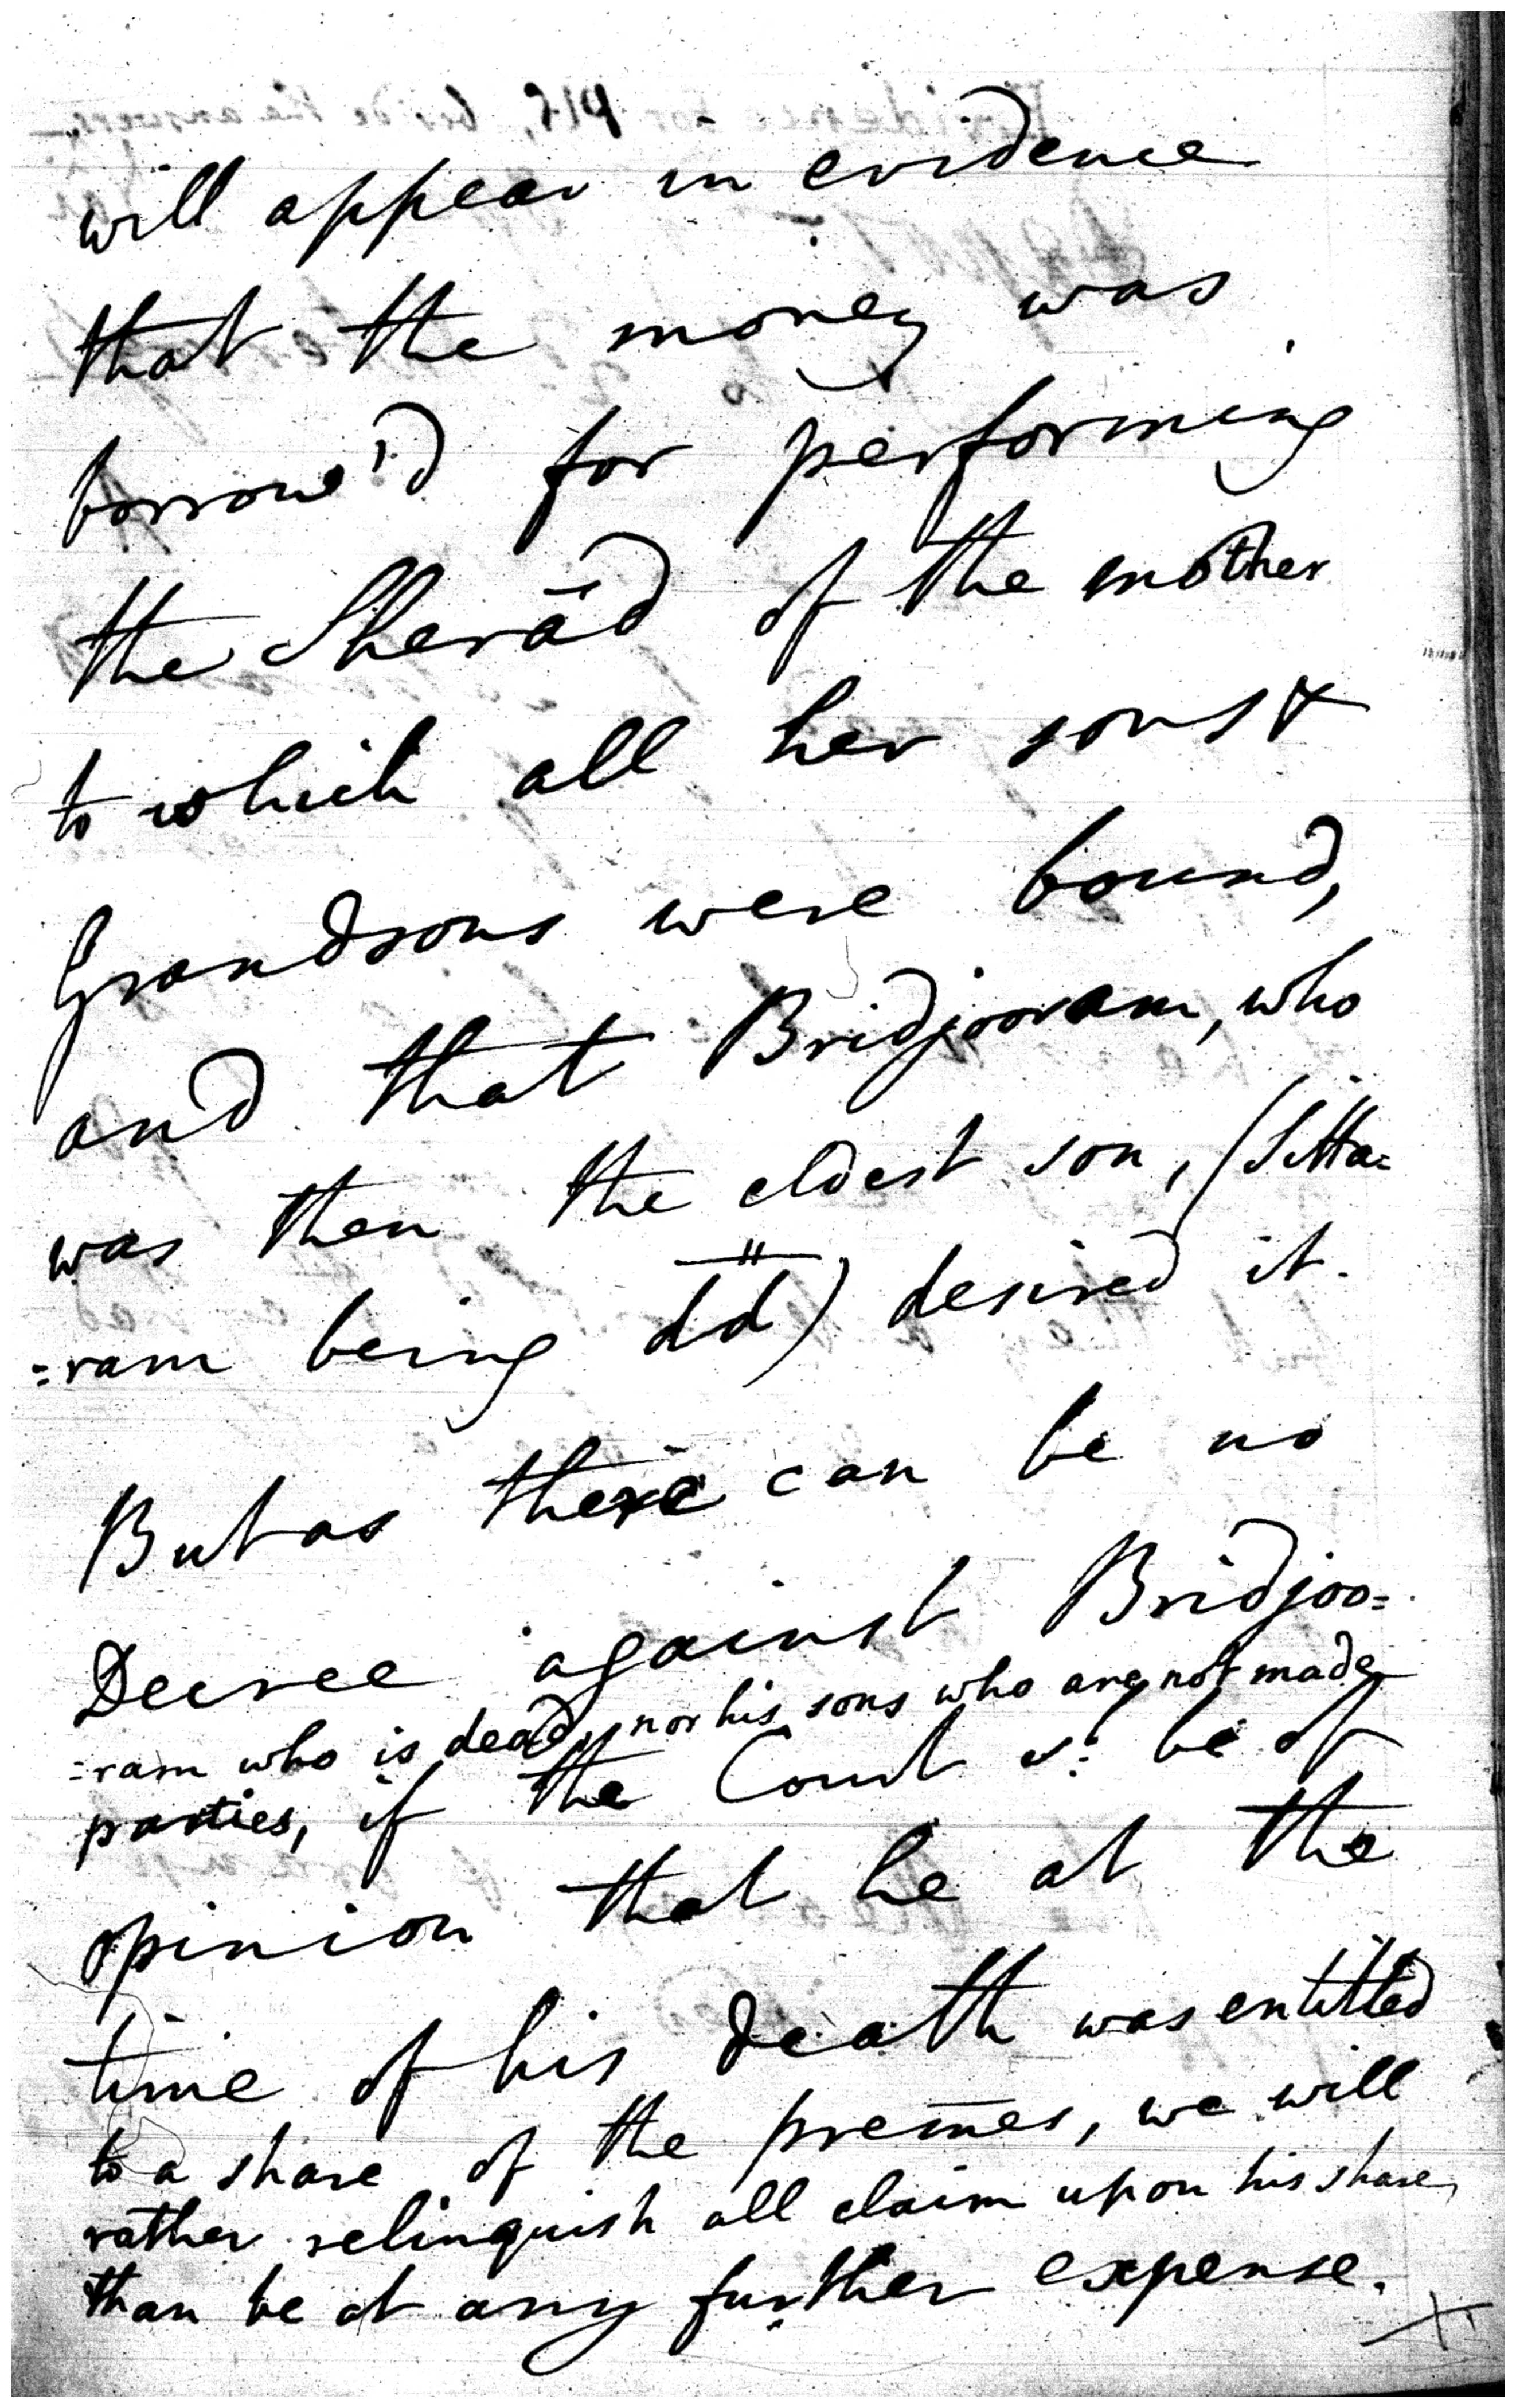 will appear in evidence
that the money was
borrow'd for performing
the Sherād of the mother
to which all her sons &
Grandsons were bound,
and that Bridjooram, who
was then the eldest son, (Sitta=
=ram being dd) desired it.
But as there can be no
Decree against Bridjoo=
=ram who is dead, nor his sons who are not made
parties, if the Court s: be of
opinion that he at the
time of his death was entitled
to a share of the premes, we will
rather relinquish all claim upon his share,
than be at any further expense.